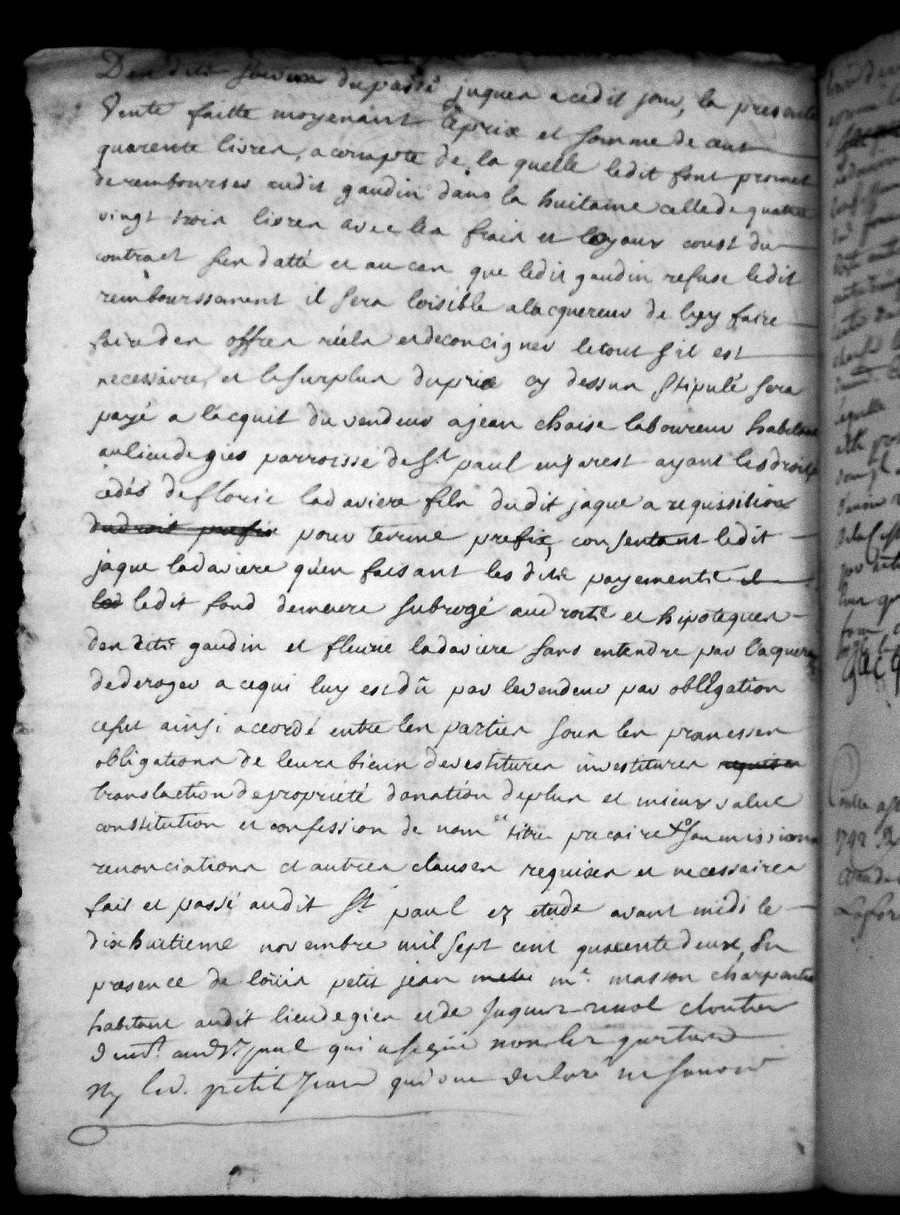 Desdits servis du passé jusques a cedit jour, la presente
Vente faitte moyenant le prix et somme de cent
quarente livres, a compte de la quelle ledit font promet
de rembourser audit gaudin dans la huitaine celle de quatre
vingt trois livres avec les frais et loyaux coust du
contract sus datté et au cas que ledit gaudin refuse ledit
remboursement il sera loisible a lacquereur de luy faire
faire des offres réels et deconcigner le tout s'il est
necessaire, et le surplus du prix cy dessus stipulé sera
payé a lacquit du vendeur a jean chaise laboureur habitant
au lieu de gies parroisse de St paul en jarest ayant les droits
cédés de florie ladaviere fils dudit jaque a requisition
pour terme prefix, consentant ledit
jaque ladaviere qu'en faisant lesdits payements il
ledit fond demeure subrogé au droits et hipoteques
desdits gaudin et fleurie ladaviere sans entendre par lacquereur
dederoger a cequi luy est dû par le vendeur par obligation
cefut ainsi accordé entre les parties sous les promesses
obligations de leurs biens devestitures investitures requises
translaction de propriété donation deplus et mieux value
constitution et confession de nom et titre precaire soumissions
renonciations et autres clauses requises et necessaires
fait et passé audit St paul ez etude avant midi le
dixhuitieme novembre mil sept cent quarente deux, En
presence de loüis petit jean me masson charpentier
habitant audit lieu de gies et de Jaques cloutier
demt. aud. St paul qui a signé non les parties
Ny led. petit Jean qui ont declaré ne savoir